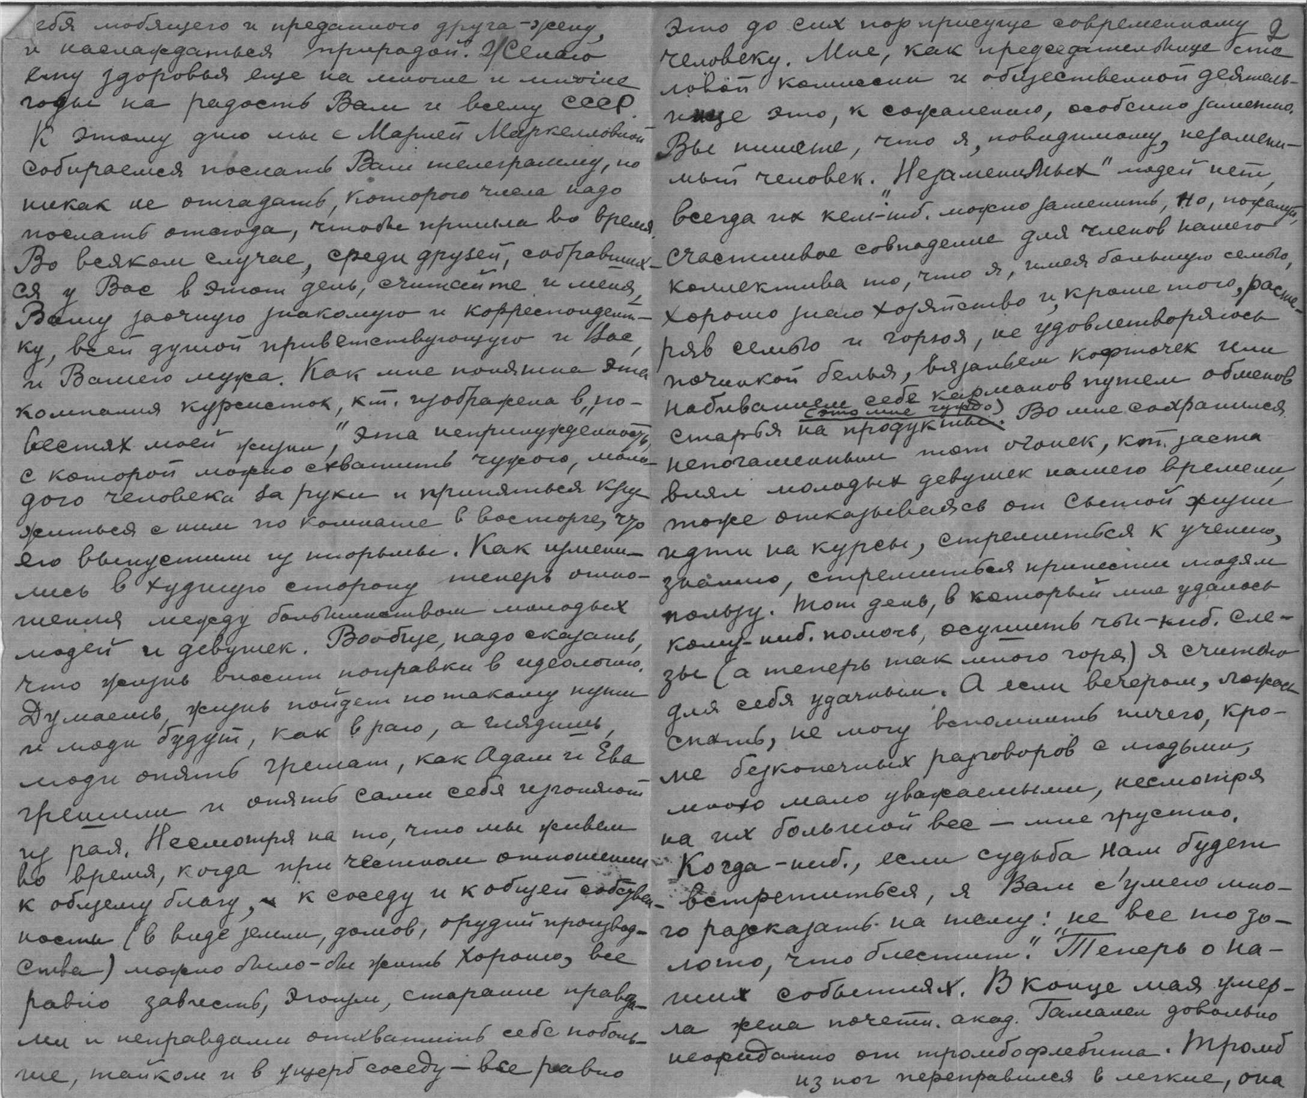 себя любящего и преданного друга-жену,
и наслаждаться природой. Желаю
ему здоровья еще на многие и многие
годы на радость Вам и всему СССР.
К этому дню мы с Марией Маркелловной
собираемся послать Вам телеграмму, но
никак не отгадать, которого числа надо
послать отсюда, чтобы пришла во время.
Во всяком случае, среди друзей, собравших-
ся у Вас в этот день, считайте и меня,
Вашу заочную знакомую и корреспондент-
ку, всей душой приветствующую и Вас,
и Вашего мужа. Как мне понятна эта
компания курсисток, кт. изображена в „по-
вестях моей жизни", эта непринужденность,
с которой можно схватить чужого, моло-
дого человека за руки и приняться кру-
житься с ним по комнате в восторге, что
его выпустили из тюрьмы. Как измени-
лись в худшую сторону теперь отно-
шения между большинством молодых
людей и девушек. Вообще, надо сказать,
что жизнь вносит поправки в идеологию.
Думаешь, жизнь пойдет по такому пути
и люди будут, как в раю, а глядишь,
люди опять грешат, как Адам и Ева
грешили и опять сами себя изгоняют
из рая. Несмотря на то, что мы живем
во время, когда при честном отношении
к общему благу, к соседу и к общей собствен-
ности (в виде земли, домов, орудий производ-
ства) можно было-бы жить хорошо, все
равно зависть, эгоизм, старание правда-
ми и неправдами отхватить себе поболь-
ше, тайком и в ущерб соседу – все равно
2
это до сих пор присуще современному
человеку. Мне, как председательнице сто
ловой комиссии и общественной деятель-
нице это, к сожалению, особенно заметно.
Вы пишете, что я, повидимому, незамени-
мый человек. „Незаменимых" людей нет,
всегда их кем-ниб. можно заменить, но, пожалуй,
счастливое совпадение для членов нашего
коллектива то, что я, имея большую семью,
хорошо знаю хозяйство и, кроме того, расте-
ряв семью и горюя, не удовлетворяюсь
починкой белья, вязаньем кофточек или
набиванием себе карманов путем обменов
(это мне чуждо)
старья на продукты. Во мне сохранился
непогашенным тот огонек, кт. заста
влял молодых девушек нашего времени,
тоже отказываясь от сытой жизни
идти на курсы, стремиться к учению,
знанию, стремиться принести людям
пользу. Тот день, в который мне удалось
кому-ниб. помочь, осушить чьи-ниб. сле-
зы (а теперь так много горя) я считаю
для себя удачным. А если вечером, ложась
спать, не могу вспомнить ничего, кро-
ме безконечных разговоров с людьми,
мною мало уважаемыми, несмотря
на их большой вес – мне грустно.
Когда-ниб., если судьба нам будет
встретиться, я Вам сумею мно-
го рассказать на тему: „не все то зо-
лото, что блестит." Теперь о на-
ших событиях. В конце мая умер-
ла жена почетн. акад. Гамалеи довольно
неожиданно от тромбофлебита. Тромб
из ног переправился в легкие, она